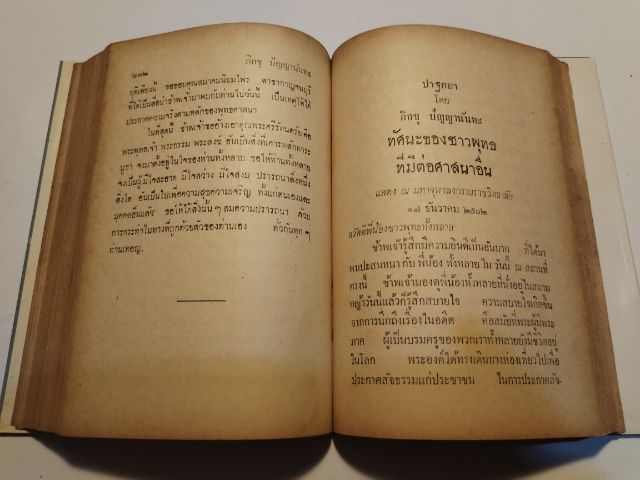 ๒๓๒
ภิกขุ ปัญญานันทะ
ยุติเพียงนี้ ขอขอบคุณสมาคมนิยมไพร สาขากาญจนบุรี
ที่ได้เป็นสื่อนำข้าพเจ้ามาพบกับท่านในวันนี้ เป็นเหตุให้ได้
ประกาศความจริงตามหลักของพุทธศาสนา
ในที่สุดนี้ ข้าพเจ้าขออ้างเอาคุณพระศรีรัตนตรัยคือ
พระพุทธเจ้า พระธรรม พระสงฆ์ อันเป็นสิ่งที่เคารพสักการะ
บูชา จงมาตั้งอยู่ในใจของท่านทั้งหลาย ขอให้ท่านทั้งหลาย
จงเป็นผู้มีใจสะอาด มีใจสว่าง มีใจสงบ ปรารถนาสิ่งหนึ่ง
สิ่งใด อันเป็นไปเพื่อความสุขความเจริญ ทั้งแก่ตนเองและ
บุคคลอื่นแล้ว ขอให้ได้สิ่งนั้น ๆ สมความปรารถนา ด้วย
การกระทำในทางที่ถูกด้วยตัวของท่านเอง ทั่วกันทุก ๆ
ท่านเทอญ.
ปาฐกถา
โดย
ภิกขุ ปัญญานันทะ
ทัศนะของชาวพุทธ
ที่มีต่อศาสนาอื่น
แสดง ณ มหาจุฬาลงกรณราชวิทยาลัย
๑๗ ธันวาคม ๒๕๐๒
สวัสดีพี่น้องชาวพุทธทั้งหลาย
ข้าพเจ้ารู้สึกมีความยินดีเป็นอันมาก ที่ได้มา
พบปะสนทนา กับ พี่น้อง ทั้งหลาย ใน วันนี้ ณ สถานที่
ตรงนี้ ข้าพเจ้ามองดูพี่น้องทั้งหลายที่นั่งอยู่ในสนาม
หญ้าวันนี้แล้วก็รู้สึกสบายใจ ความสบายใจเกิดขึ้น
จากการนึกถึงเรื่องในอดีต คือสมัยที่พระผู้มีพระ
ภาค ผู้เป็นบรมครูของพวกเราทั้งหลายยังมีชีวิตอยู่
ในโลก พระองค์ได้ทรงเดินทางท่องเที่ยวไปเพื่อ
ประกาศสัจธรรมแก่ประชาชน ในการประกาศสัจ-